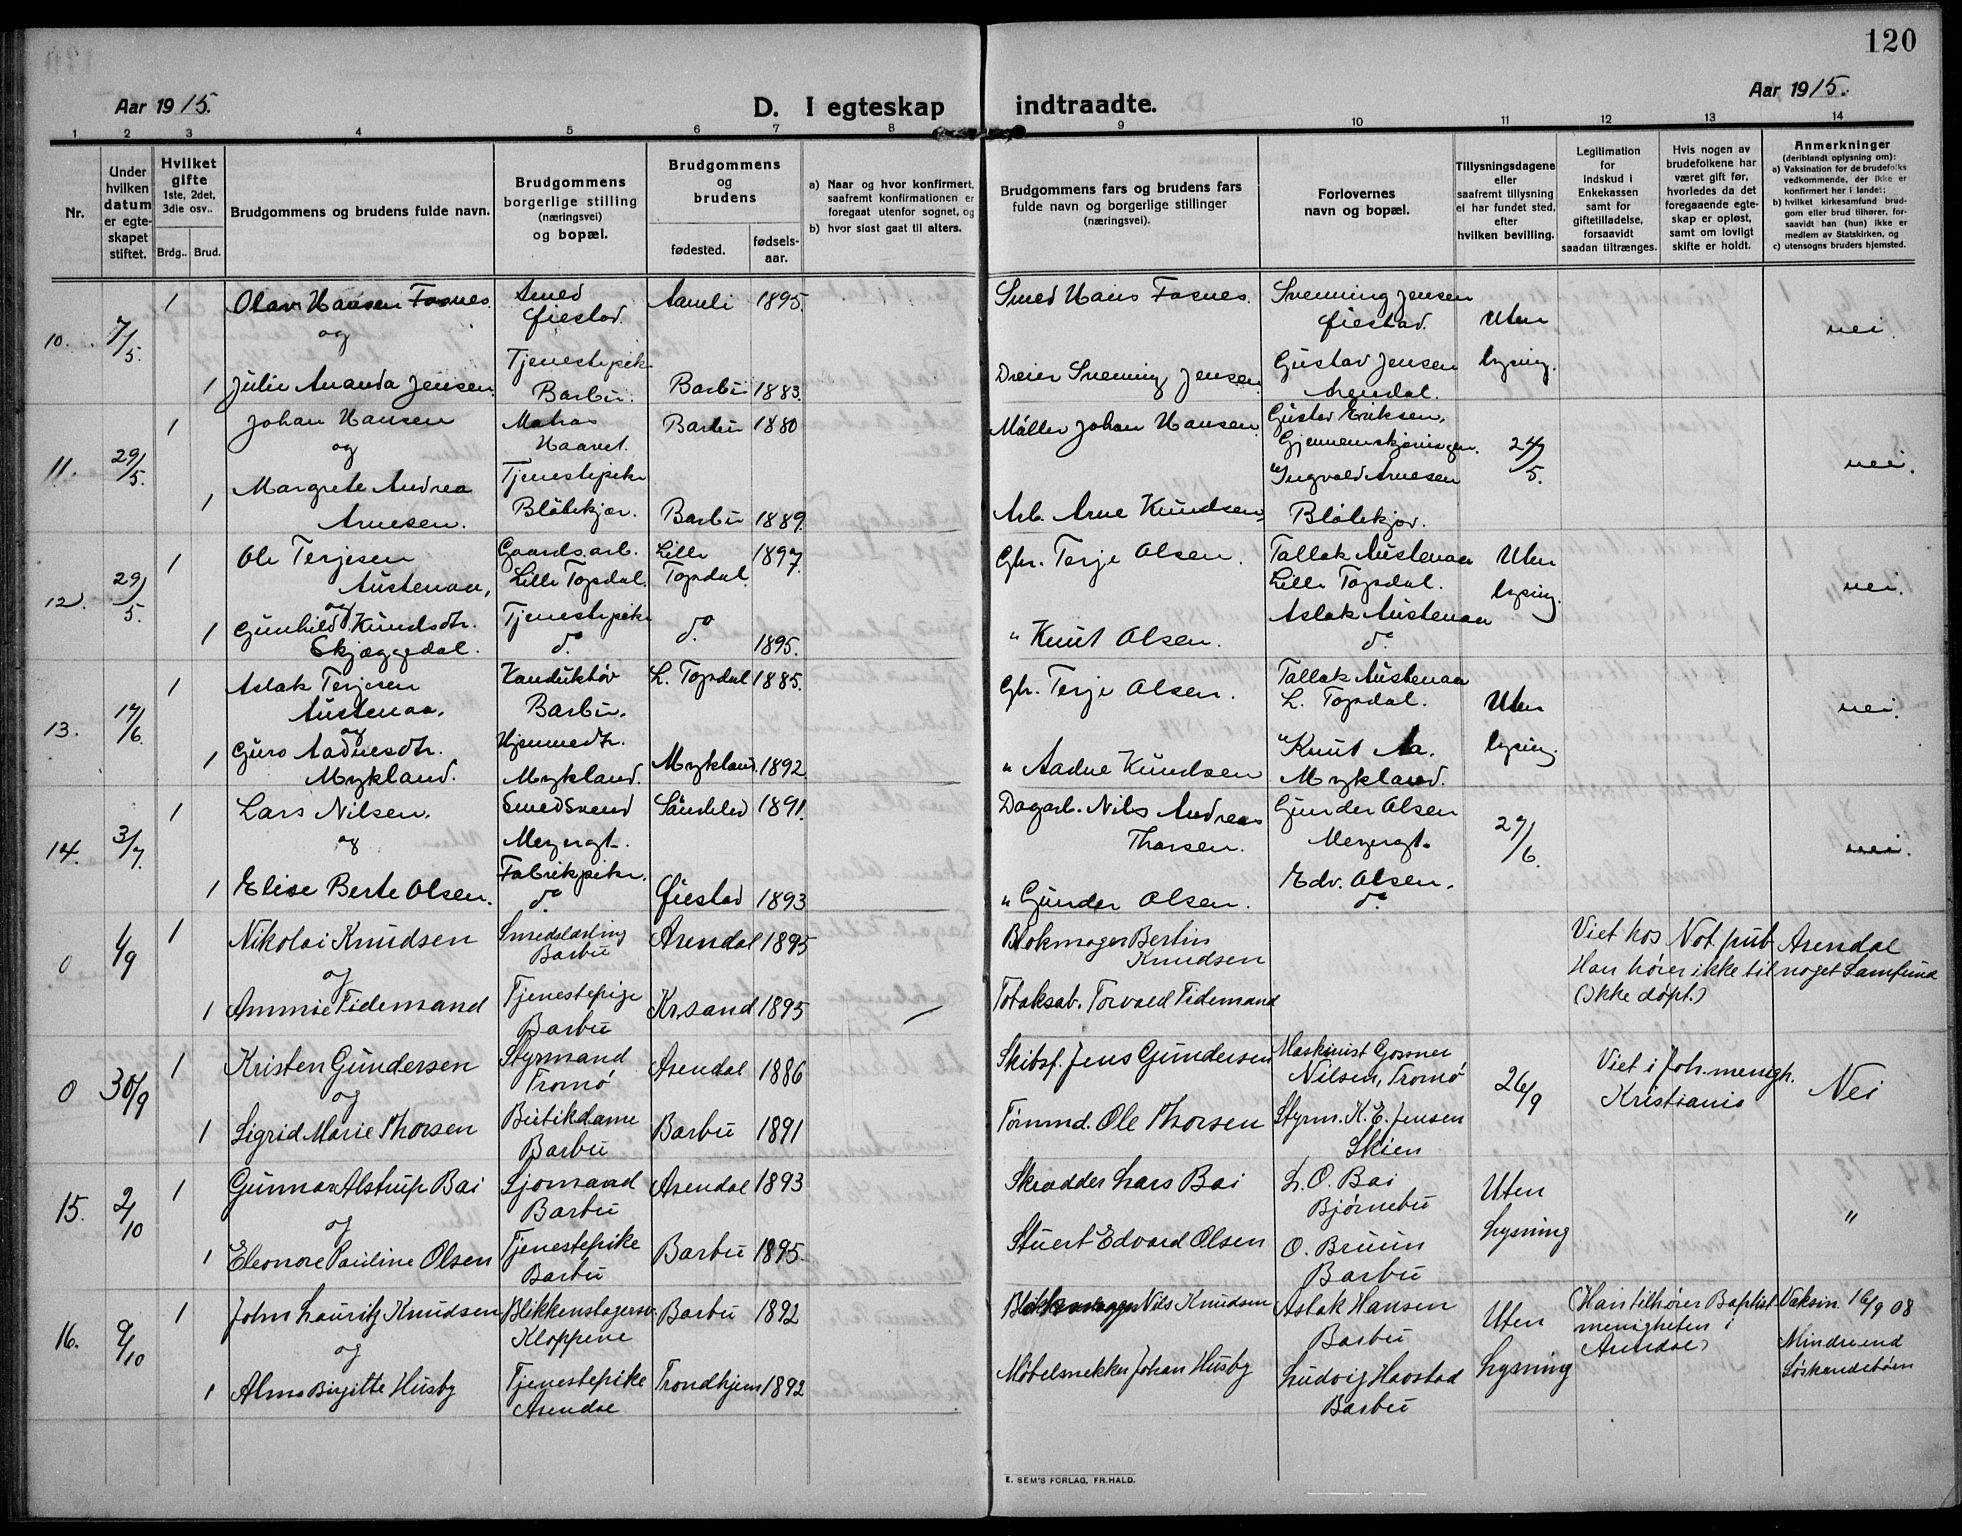 120
Aar 1915.
D. I egteskap indtraadte.
Aar 1915.
1 2 3 4 5 6 7 8 9 10 11 12 13 14
Nr.
Under hvilken datum er egteskapet stiftet.
Hvilket gifte 1ste, 2det, 3die osv..
Brdg.. Brud.
Brudgommens og brudens fulde navn.
Brudgommens borgerlige stilling (næringsvei) og bopæl.
Brudgommens og brudens
fødested. fødsels-aar.
a) Naar og hvor konfirmert, saafremt konfirmationen er foregaat utenfor sognet, og
b) hvor sidst gaat til alters.
Brudgommens fars og brudens fars fulde navn og borgerlige stillinger (næringsvei).
Forlovernes navn og bopæl.
Tillysningsdagene eller saafremt tillysning ei har fundet sted, efter hvilken bevilling.
Legitimation for indskud i Enkekassen samt for giftetilladelse, forsaavidt saadan tiltrænges.
Hvis nogen av brudefolkene har været gift før, hvorledes da det foregaaende egteskap er opløst, samt om lovligt skifte er holdt.
Anmerkninger (deriblandt oplysning om): a) Vaksination for de brudefolks vedkommende, der ikke er konfirmert her i landet; b) hvilket kirkesamfund brudgom eller brud tilhører, forsaavidt han (hun) ikke er medlem av Statskirken, og c) utensogns bruders hjemsted.
10. 7/5. 1 Olav Hansen Fosnes. Smed Øiestad. Aamli 1895. Smed Hans Fosnes. Svenning Jensen Øiestad. Uten lysing. nei.
og
1 Julie Amanda Jensen. Tjenestepike Barbu. Barbu 1883. Dreier Svenning Jensen. Gustav Jensen Arendal.
11. 29/5. 1 Johan Hansen Matros Haavet. Barbu 1880 Møller Johan Hansen Gustav Eriksen, Gjennemskjæringen. 24/5. nei.
og
1 Margrete Andrea Arnesen. Tjenestepike Blødekjær. Barbu 1889. Arb. Arne Knudsen Ingvald Arnesen Blødekjær.
12. 29/5. 1 Ole Terjesen Austenaa, Gaards.arb. Lille Topdal. Lille Topdal. 1897. Gbr. Terje Olsen. Tallak Austenaa Lille Topdal. Uten lysing. nei.
og
1 Gunhild Knudsdtr. Skjæggedal. Tjenestepike do. do. 1895. " Knut Olsen. Aslak Austenaa do
13. 17/6. 1 Aslak Terjesen Austenaa. Konduktør Barbu. L. Topdal 1885. Gbr. Terje Olsen. Tallak Austenaa L. Topdal. Uten lysing. nei.
og
1 Guro Aadnesdtr. Mykland. Hjemmedtr. Mykland. Mykland. 1892 " Aadne Knudsen "Knut Aa. Mykland.
14. 3/7. 1 Lars Nilsen. Smedsvend Søndeled 1891. Dagarb. Nils Andreas Thorsen. Gunder Olsen 27/6. nei.
og
1 Elise Berte Olsen. Fabrikpike. do. Øiestad 1893 " Gunder Olsen. Edv. Olsen. do
0 1/9 1 Nikolai Knudsen Smedslærling Barbu Arendal 1895 Blokmager Bertin Knudsen Viet hos Not. pub. Arendal
og Han hører ikke til noget Samfund
1 Ammie Tidemand Tjenestepige Barbu Kr.sand 1895 Tobaksab. Torvald Tidemand (ikke døpt.)
0 30/9 1 Kristen Gundersen Styrmand Tromø Arendal 1886 Skibsf. Jens Gundersen Maskinist Gosner Nilsen, Tromø 26/9 Viet i Joh. menigh. Kristiania Nei
og
1 Sigrid Marie Thorsen Butikdame Barbu Barbu 1891 Tømmd. Ole Thorsen Styrm. K. E. Jensen Skien
15. 2/10 1 Gunnar Alstrup Bai Sjømand Barbu Arendal 1893 Skrædder Lars Bai L. O. Bai Bjørnebu Uten Lysning "
og
1 Eleonore Pauline Olsen Tjenestepike Barbu Barbu 1895. Stuert Edvard Olsen O. Bruun Barbu
16. 9/10 1 John Lauritz Knudsen Blikkenslagersv. Kloppene Barbu 1892 Nils Knudsen Aslak Hansen Barbu Uten Lysning (Han tilhører Baptistmenigheten i Arendal) Vaksin. 16/9 08
og Mindre end Søskendebørn
1 Alma Birgitte Husby Tjenestepike Arendal Trondhjem 1892 Møbelsnekker Johan Husby Ludvig Havstad Barbu
E. SEM'S FORLAG, FR.HALD.